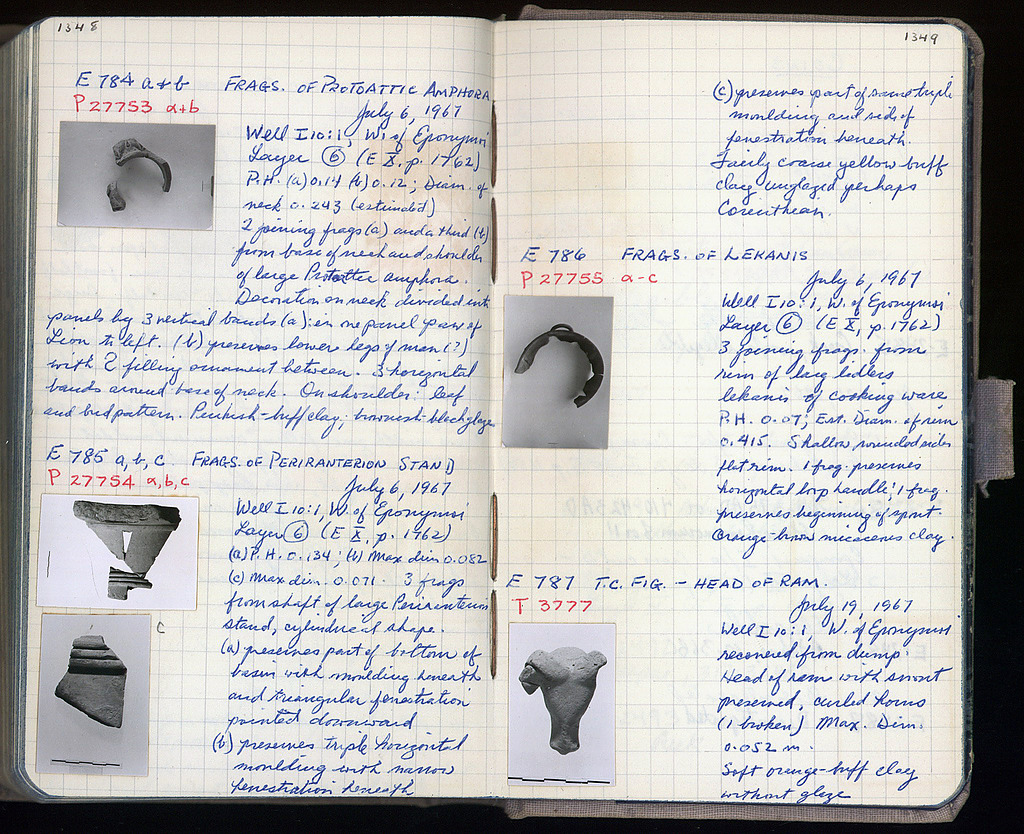 1348
E 784 a+b FRAGS. OF PROTOATTIC AMPHORA
P 27753 a+b
July 6, 1967
Well I 10:1, W. of Eponymoi
Layer ⑥ (E X, p. 1762)
P.H. (a) 0.14 (b) 0.12; Diam. of
neck 0.243 (estimated)
2 joining frags (a) and a third (b)
from base of neck and shoulder
of large Protoattic amphora.
Decoration on neck divided into
panels by 3 vertical bands (a): in one panel paw of
Lion to left. (b) preserves lower legs of man (?)
with filling ornament between. 3 horizontal
bands around base of neck. On shoulder: leaf
and bud pattern. Pinkish-buff clay; brownish-black glaze
E 785 a, b, c FRAGS. OF PERIRANTERION STAND
P 27754 a, b, c
July 6, 1967
Well I 10:1, W. of Eponymoi
Layer ⑥ (E X, p. 1762)
(a) P.H. 0.134; (b) Max dim 0.082
(c) Max dim. 0.071. 3 frags
from shaft of large Periranterion
stand, cylindrical shape.
(a) preserves part of bottom of
basin with moulding beneath
and triangular fenestration
pointed downward
(b) preserves triple horizontal
moulding with narrow
fenestration beneath
C
1349
(c) preserves part of same triple
moulding and side of
fenestration beneath.
Fairly coarse yellow buff
clay unglazed perhaps
Corinthian.
E 786 FRAGS. OF LEKANIS
P 27755 a-c
July 6, 1967
Well I 10:1, W. of Eponymoi
Layer ⑥ (E X, p. 1762)
3 joining frags. from
rim of large lidless
lekanis of cooking ware
P.H. 0.07; Est. Diam. of rim
0.415. Shallow rounded sides
flat rim. 1 frag. preserves
horizontal loop handle; 1 frag.
preserves beginning of spout.
Orange-brown micaceous clay.
E 787 T.C. FIG. - HEAD OF RAM.
T 3777
July 19, 1967
Well I 10:1, W. of Eponymoi
recovered from dump.
Head of ram with snout
preserved, curled horns
(1 broken) Max. Dim.
0.052 m.
Soft orange-buff clay
without glaze